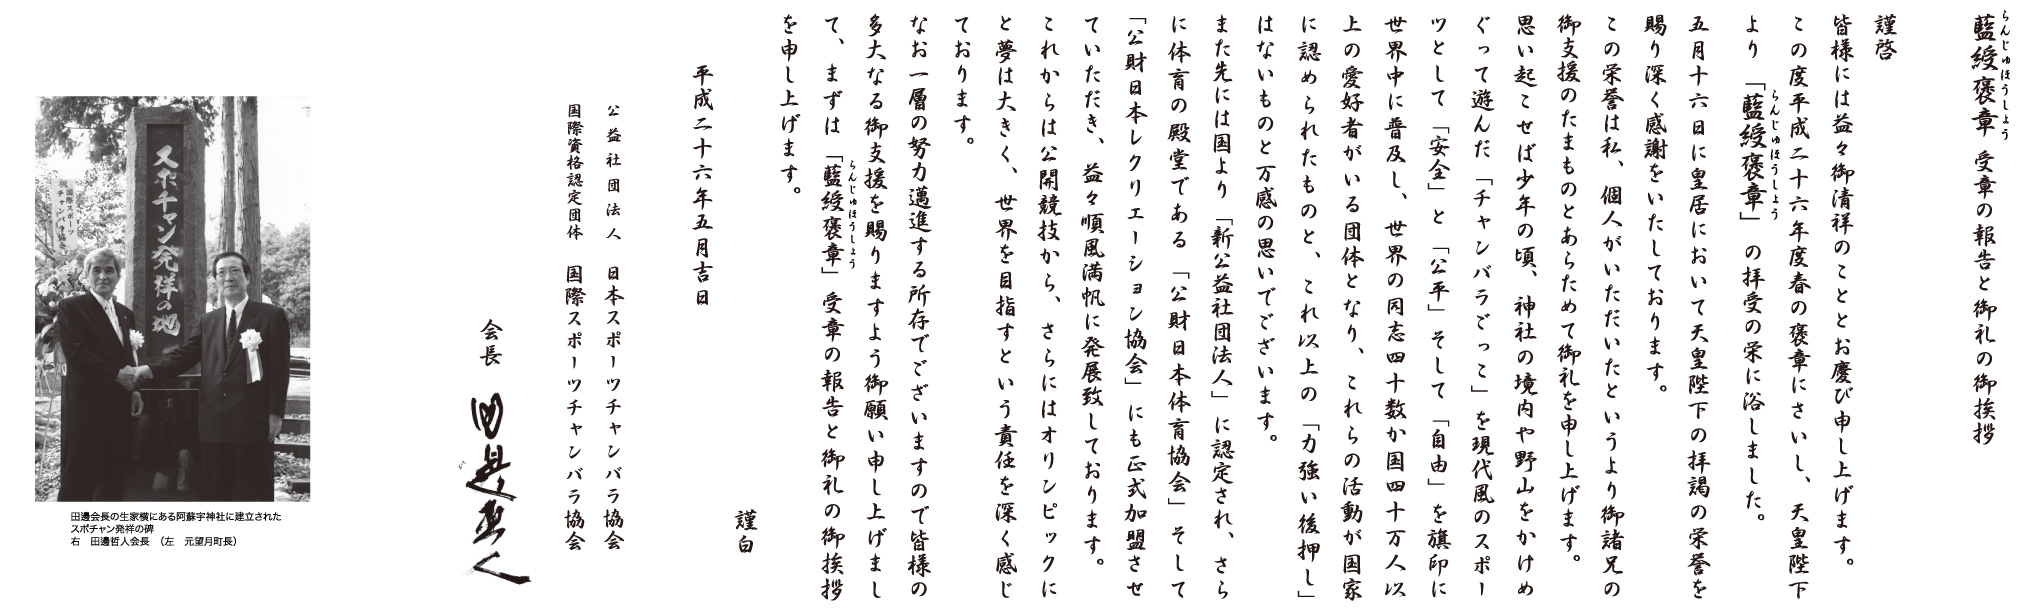 藍綬褒章 受章の報告と御礼の御挨拶
らんじゅほうしょう
謹啓
皆様には益々御清祥のこととお慶び申し上げます。
この度平成二十六年度春の褒章にさいし、天皇陛下
より「藍綬褒章」の拝受の栄に浴しました。
らんじゅほうしょう
五月十六日に皇居において天皇陛下の拝謁の栄誉を
賜り深く感謝をいたしております。
この栄誉は私、個人がいただいたというより御諸兄の
御支援のたまものとあらためて御礼を申し上げます。
思い起こせば少年の頃、神社の境内や野山をかけめ
ぐって遊んだ「チャンバラごっこ」を現代風のスポー
ツとして「安全」と「公平」そして「自由」を旗印に
世界中に普及し、世界の同志四十数か国四十万人以
上の愛好者がいる団体となり、これらの活動が国家
に認められたものと、これ以上の「力強い後押し」
はないものと万感の思いでございます。
また先には国より「新公益社団法人」に認定され、さら
に体育の殿堂である「公財日本体育協会」そして
「公財日本レクリエーション協会」にも正式加盟させ
ていただき、益々順風満帆に発展致しております。
これからは公開競技から、さらにはオリンピックに
と夢は大きく、世界を目指すという責任を深く感じ
ております。
なお一層の努力邁進する所存でございますので皆様の
多大なる御支援を賜りますよう御願い申し上げまし
て、まずは「藍綬褒章」受章の報告と御礼の御挨拶
らんじゅほうしょう
を申し上げます。
謹白
平成二十六年五月吉日
公益社団法人 日本スポーツチャンバラ協会
国際資格認定団体 国際スポーツチャンバラ協会
会長 田邊哲人
スポチャン発祥の地
祝 国際スポーツチャンバラ協会
田邊会長の生家横にある阿蘇宇神社に建立された
スポチャン発祥の碑
右 田邊哲人会長 (左 元望月町長)